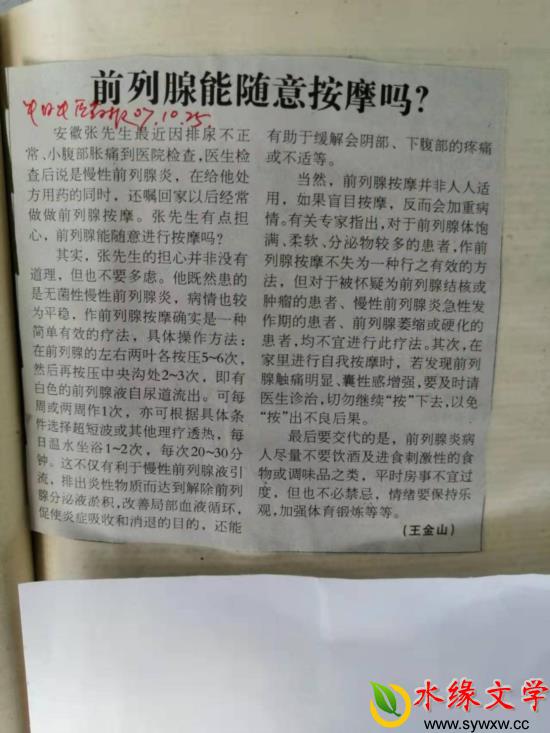 前列腺能随意按摩吗?
07.10.25
安徽张先生最近因排尿不正
常、小腹部胀痛到医院检查,医生检
查后说是慢性前列腺炎,在给他处
方用药的同时,还嘱回家以后经常
做做前列腺按摩。张先生有点担
心,前列腺能随意进行按摩吗?
其实,张先生的担心并非没有
道理,但也不要多虑。他既然患的
是无菌性慢性前列腺炎,病情也较
为平稳,作前列腺按摩确实是一种
简单有效的疗法,具体操作方法:
在前列腺的左右两叶各按压5~6次,
然后再按压中央沟处2~3次,即有
白色的前列腺液自尿道流出。可每
周或两周作1次,亦可根据具体条
件选择超短波或其他理疗透热,每
日温水坐浴1~2次,每次20~30分
钟。这不仅有利于慢性前列腺液引
流,排出炎性物质而达到解除前列
腺分泌液淤积,改善局部血液循环,
促使炎症吸收和消退的目的,还能
有助于缓解会阴部、下腹部的疼痛
或不适等。
当然,前列腺按摩并非人人适
用,如果盲目按摩,反而会加重病
情。有关专家指出,对于前列腺体饱
满、柔软、分泌物较多的患者,作前
列腺按摩不失为一种行之有效的方
法,但对于被怀疑为前列腺结核或
肿瘤的患者、慢性前列腺炎急性发
作期的患者、前列腺萎缩或硬化的
患者,均不宜进行此疗法。其次,在
家里进行自我按摩时,若发现前列
腺触痛明显、囊性感增强,要及时请
医生诊治,切勿继续“按”下去,以免
“按”出不良后果。
最后要交代的是,前列腺炎病
人尽量不要饮酒及进食刺激性的食
物或调味品之类,平时房事不宜过
度,但也不必禁忌,情绪要保持乐
观,加强体育锻炼等等。
(王金山)
水缘文学
www.sywxw.com